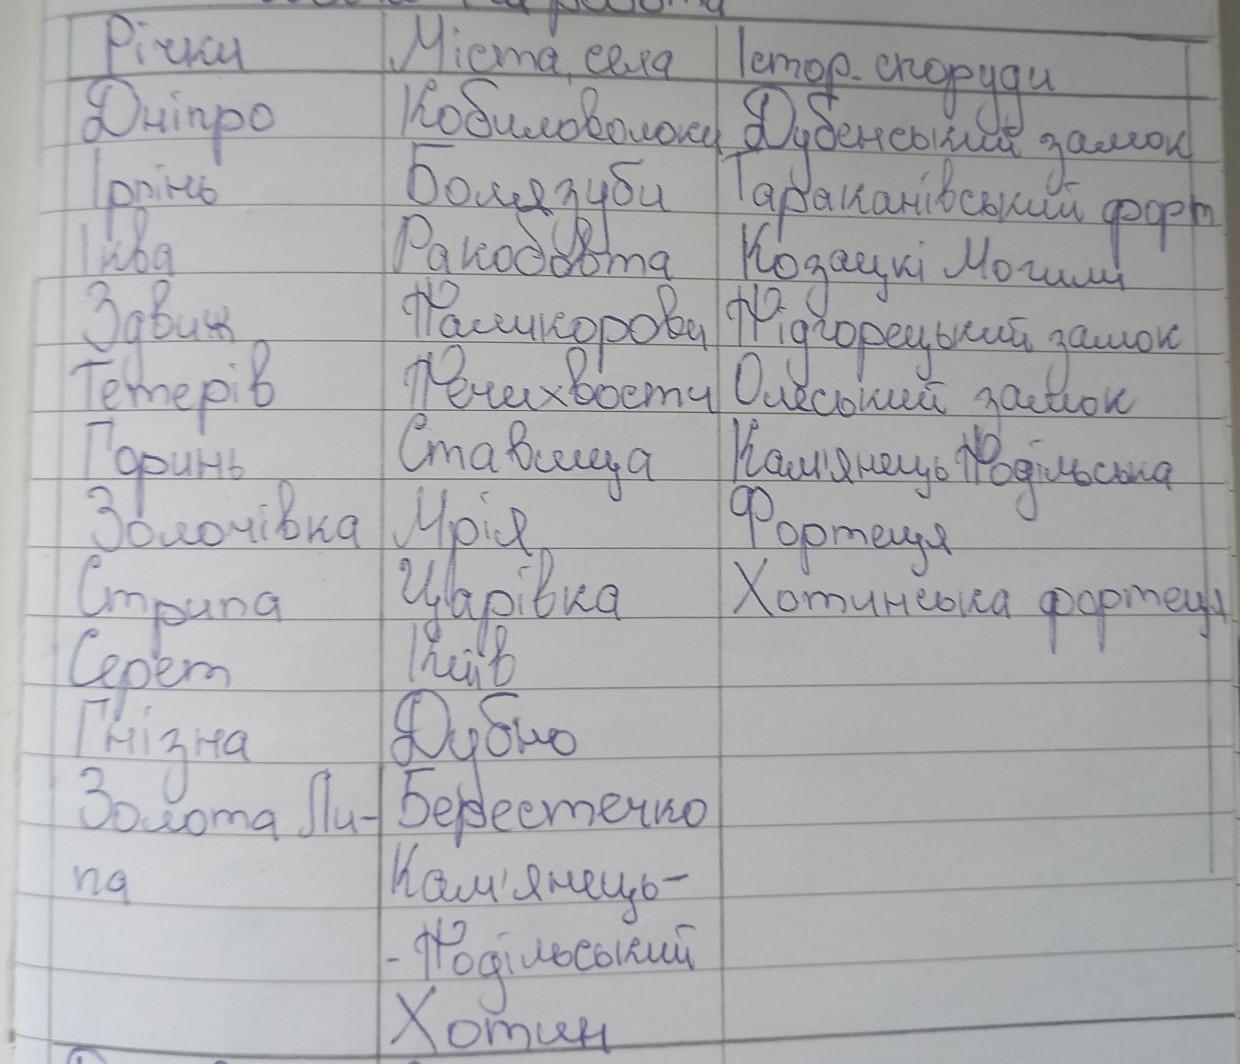 Річки Міста, села Істор. споруди
Дніпро Кобиловолоки Дубенський замок
Ірпінь Болязуби Тараканівський форт
Іква Ракобовта Козацкі Могили
Здвиж Паликорови Підгорецький замок
Тетерів Печихвости Олеський замок
Горинь Ставища Кам'янець Подільська
Золочівка Мрія Фортеця
Стрипа Царівка Хотинська фортеця
Серет Київ
Гнізна Дубно
Золота Ли- Берестечко
па Кам'янець-
-Подільський
Хотин